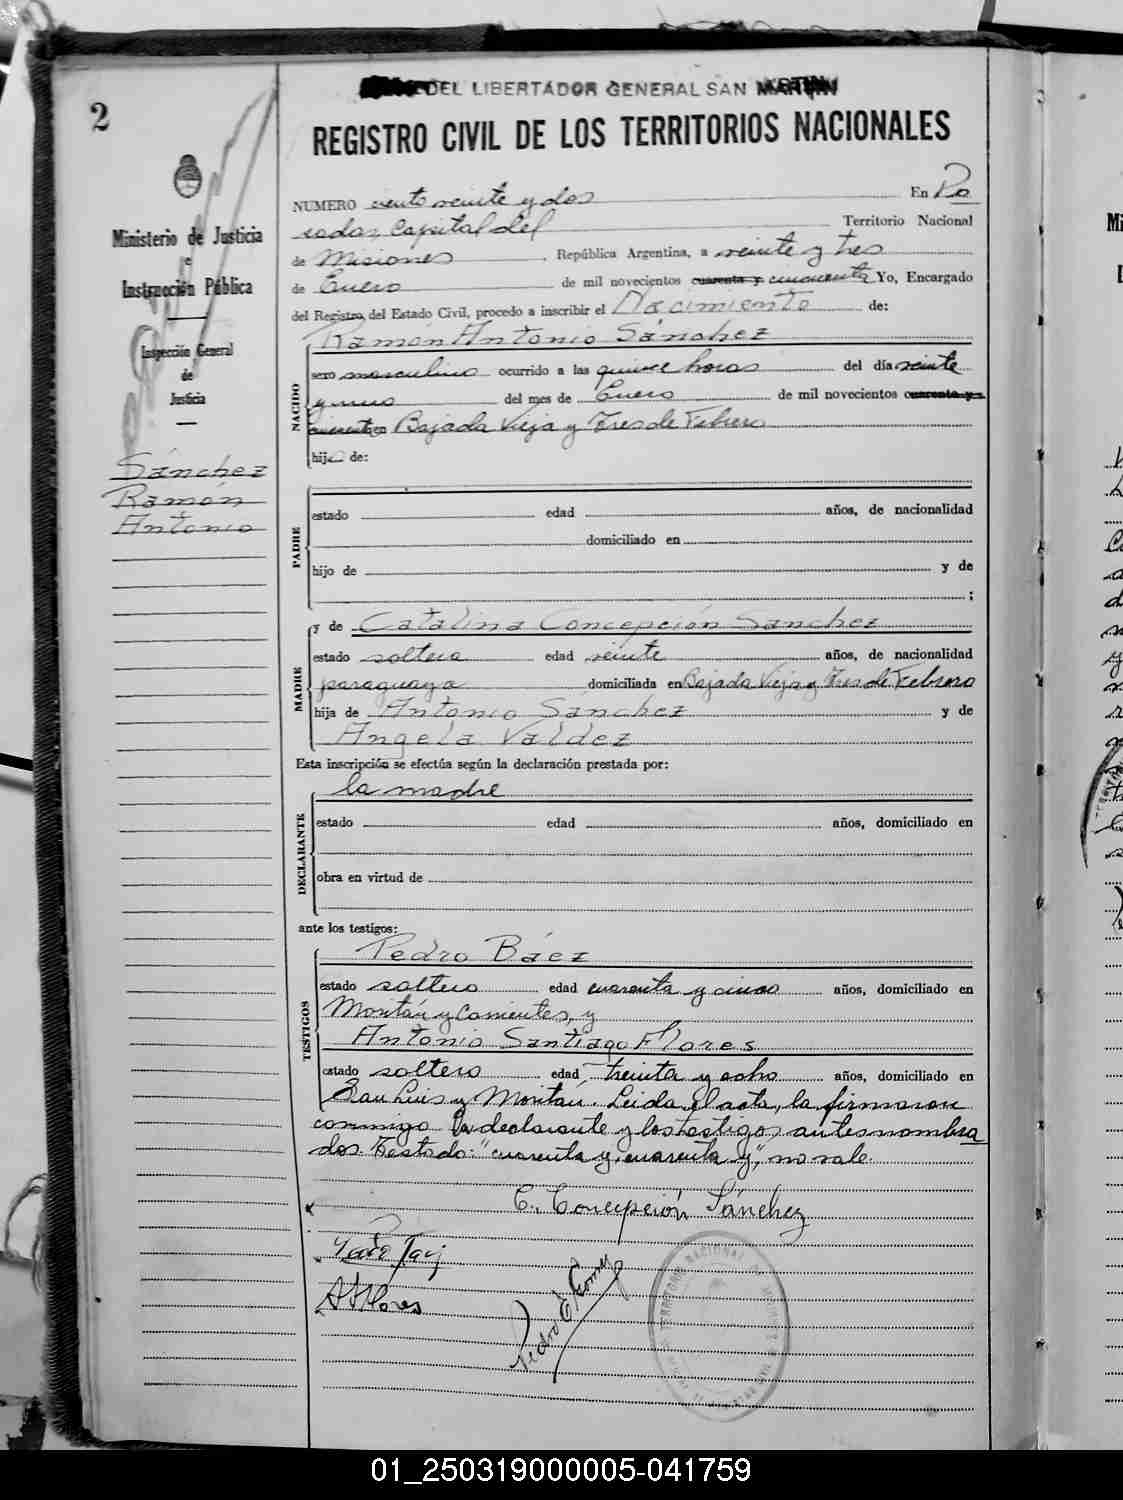 DEL LIBERTADOR GENERAL SAN MARTIN
2
REGISTRO CIVIL DE LOS TERRITORIOS NACIONALES
Ministerio de Justicia
e
Instrucción Pública
Inspección General
de
Justicia
Sánchez
Ramón
Antonio
NUMERO ciento veinte y dos En Po
sadas, Capital del Territorio Nacional
de Misiones, República Argentina, a veinte y tres
de Enero de mil novecientos cuarenta y cincuenta Yo, Encargado
del Registro del Estado Civil, procedo a inscribir el Nacimiento de:
NACIDO
Ramón Antonio Sánchez
sexo masculino ocurrido a las quince horas del día veinte
y uno del mes de Enero de mil novecientos cuarenta y
cuarenta en Bajada Vieja y Tres de Febrero
hijo de:
PADRE
estado edad años, de nacionalidad
domiciliado en
hijo de y de
;
MADRE
y de Catalina Concepción Sanchez
estado soltera edad veinte años, de nacionalidad
paraguaya domiciliada en Bajada Vieja y Tres de Febrero
hija de Antonio Sánchez y de
Angela Valdez
Esta inscripción se efectúa según la declaración prestada por:
DECLARANTE
la madre
estado edad años, domiciliado en
obra en virtud de
ante los testigos:
TESTIGOS
Pedro Báez
estado soltero edad cuarenta y cinco años, domiciliado en
Moritán y Corrientes, y
Antonio Santiago Flores
estado soltero edad treinta y ocho años, domiciliado en
San Luis y Moritán. Leida el acta, la firmaron
conmigo la declarante y los testigos antes nombra
dos. Testado: "cuarenta y, cuarenta y", no vale.
C. Concepción Sánchez
A S Flores
Pedro E. Gomez
TERRITORIO NACIONAL DE MISIONES
01_250319000005-041759